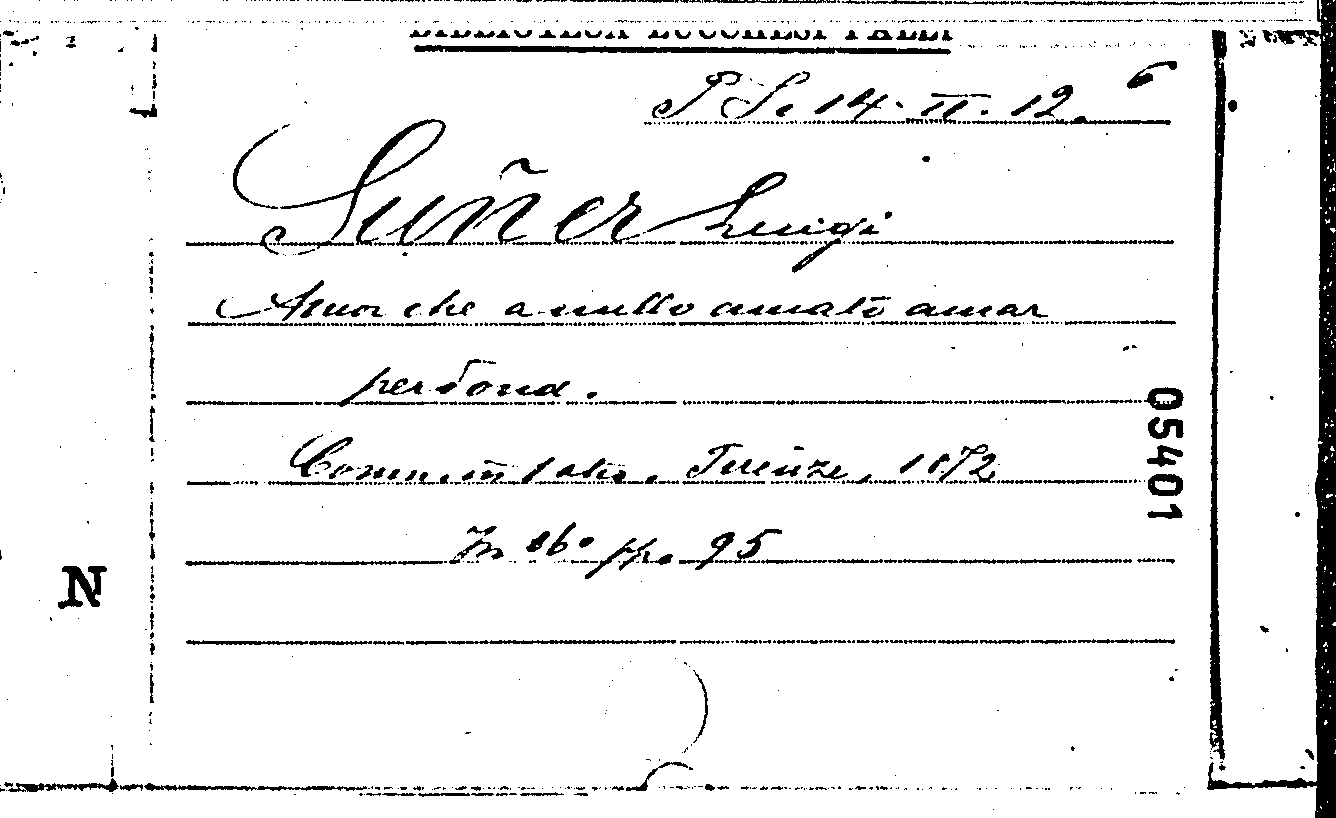 BIBLIOTECA LUCCHESI PALLI
P. S. 14. II. 12. 6
Suñer Luigi
Amor che a nullo amato amar
perdona.
Comm. in 1 atto. Firenze, 1872
In 16° pp. 95
05401
N